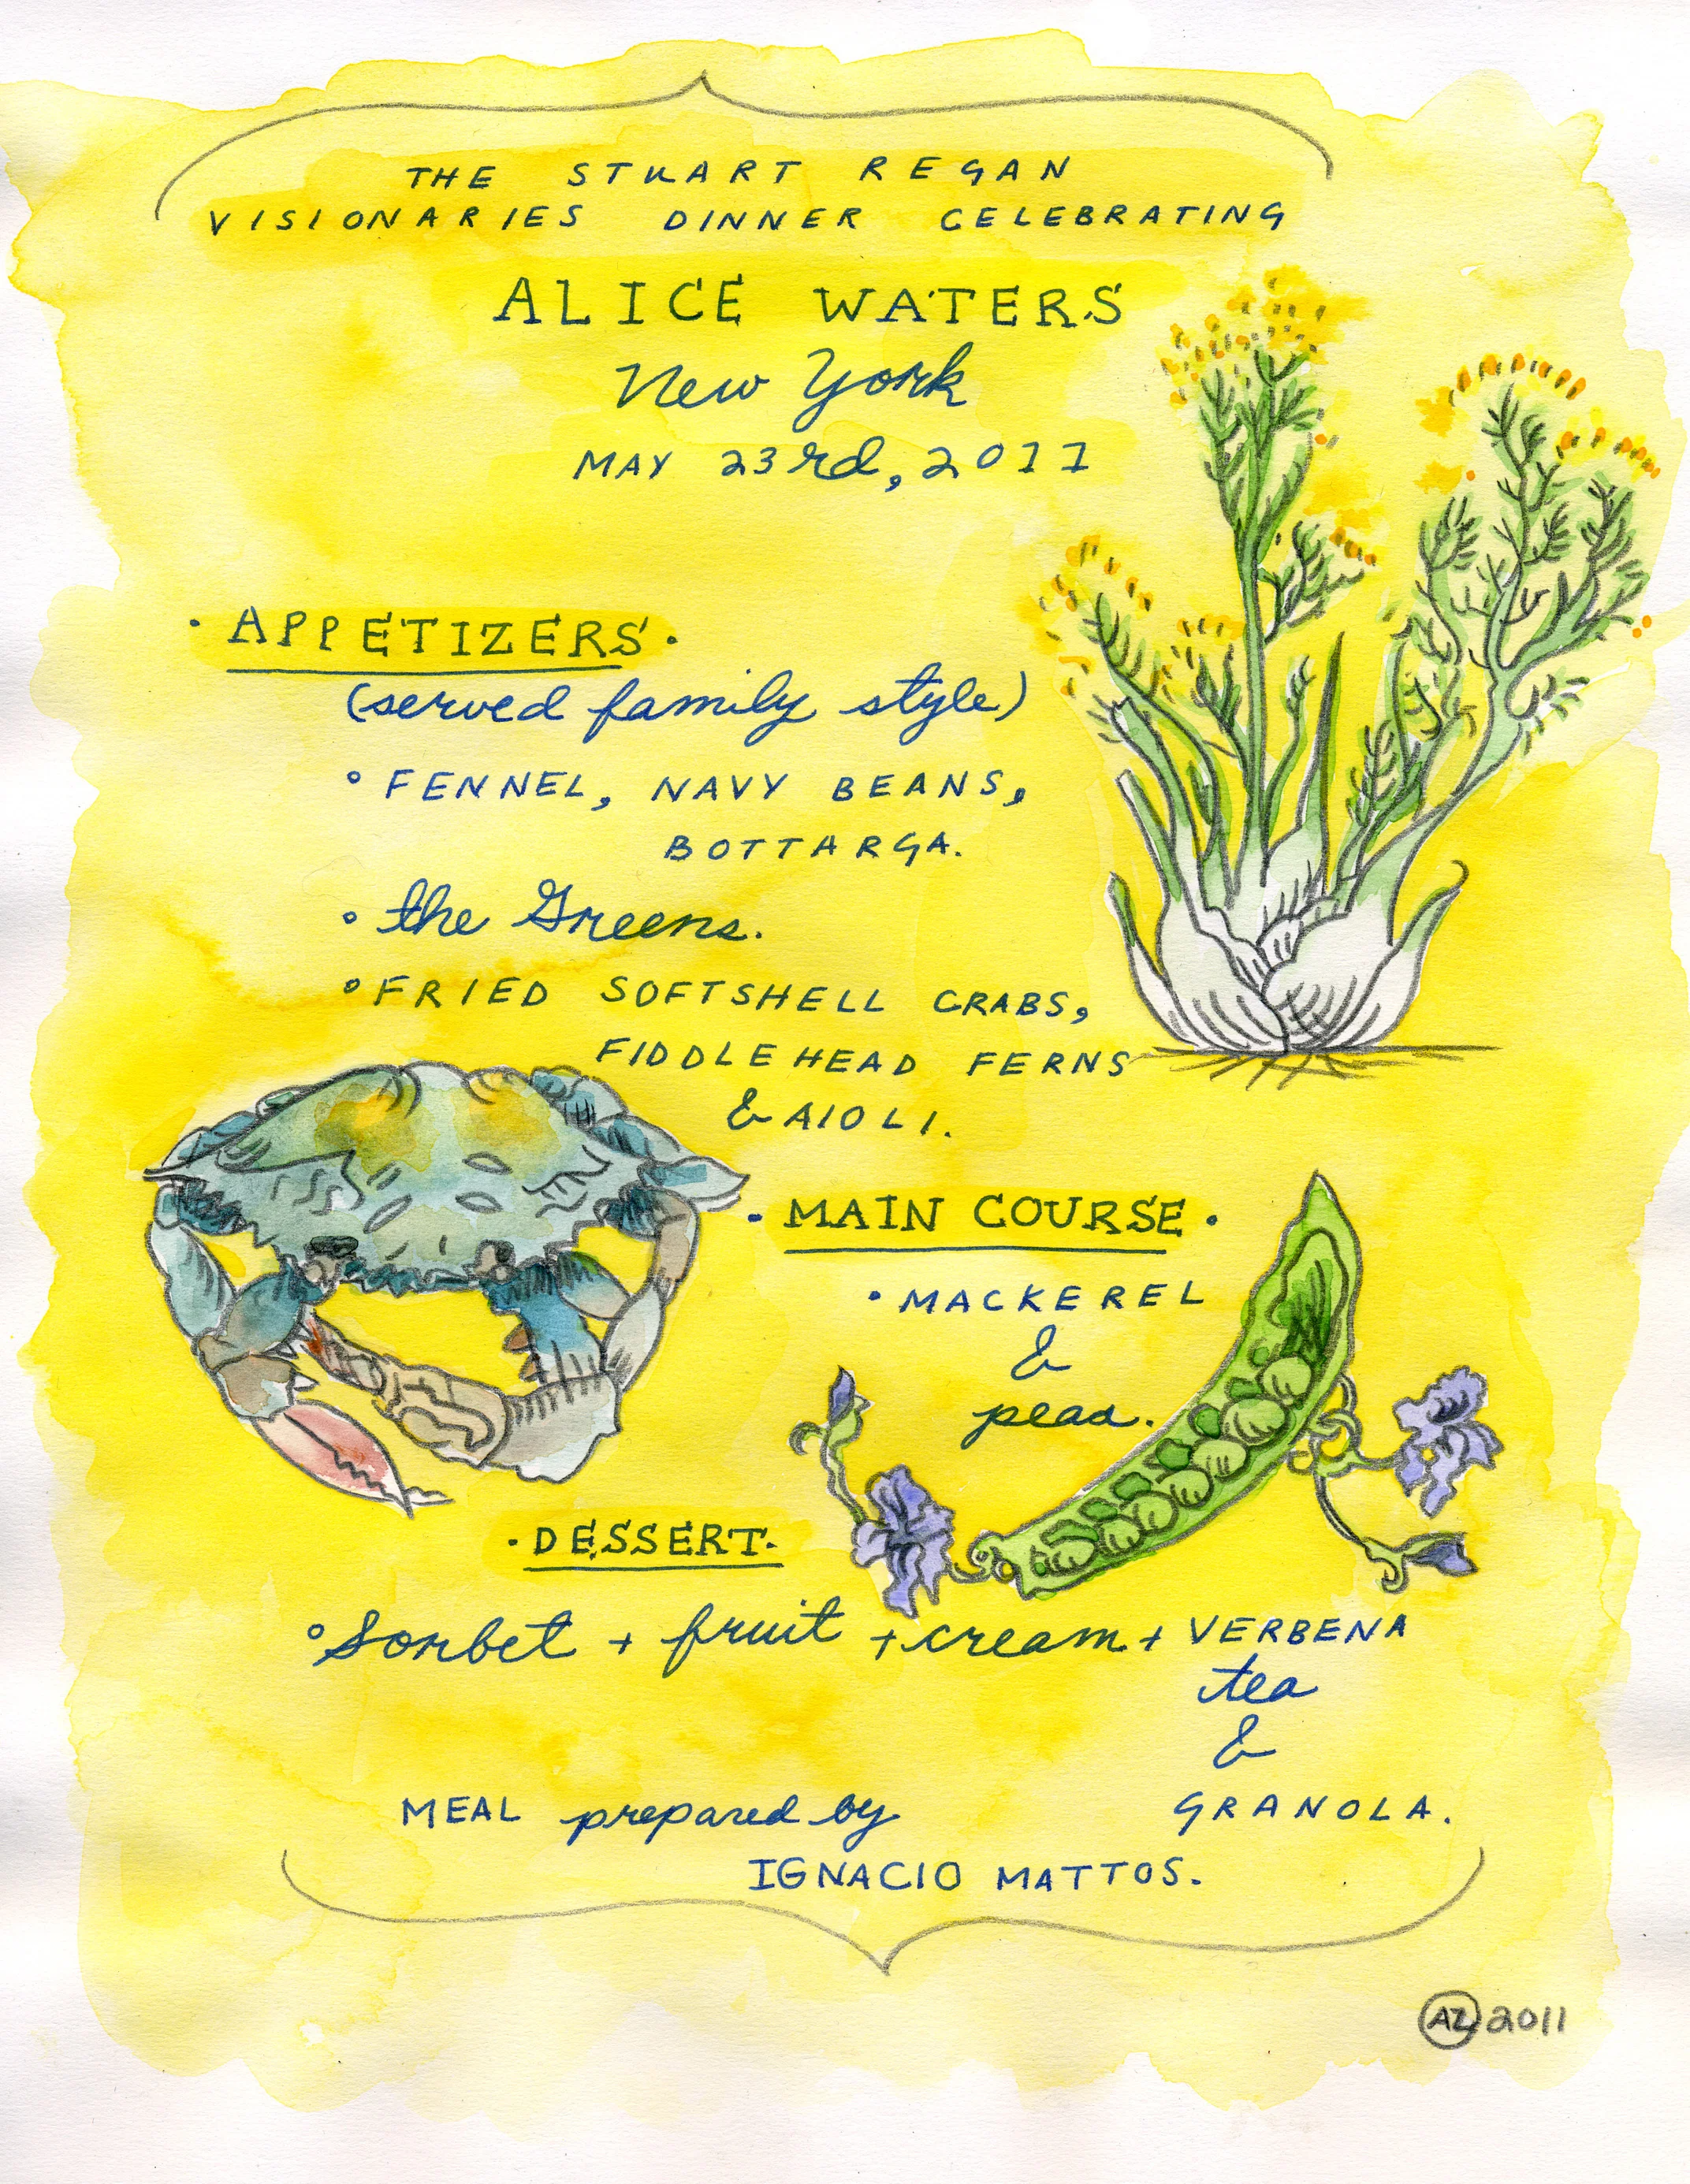 THE STUART REGAN
VISIONARIES DINNER CELEBRATING
ALICE WATERS
New York
MAY 23rd, 2011
· APPETIZERS ·
(served family style)
° FENNEL, NAVY BEANS,
BOTTARGA.
° the Greens.
° FRIED SOFTSHELL CRABS,
FIDDLEHEAD FERNS
& AIOLI.
· MAIN COURSE ·
· MACKEREL
&
peas.
· DESSERT ·
° Sorbet + fruit + cream + VERBENA
tea
&
GRANOLA.
MEAL prepared by
IGNACIO MATTOS.
AZ 2011